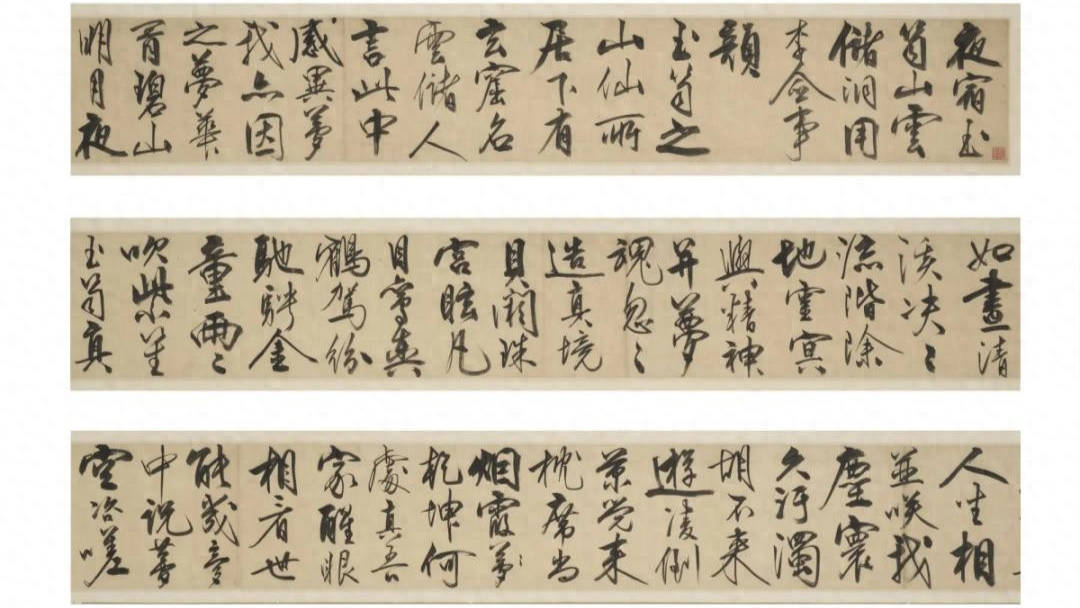 夜宿玉
笥山雲
儲洞用
李僉事
韻
玉笥之
山仙所
居下有
玄窟名
雲儲人
言此中
感異夢
我亦因
之夢華
胥碧山
明月夜
如晝清
溪决〻
流階除
地靈冥
與精神
并夢
魂忽〻
造真境
貝闕珠
宮眩凡
目鸞輿
鶴駕紛
馳騁金
童兩〻
吹紫笙
玉笥真
人坐相
並咲我
塵寰
久汚濁
胡不來
遊凌倒
景覺來
枕席尚
烟霞
乾坤何
處真吾
家醒眼
相看世
能幾夢
中說夢
空咨嗟